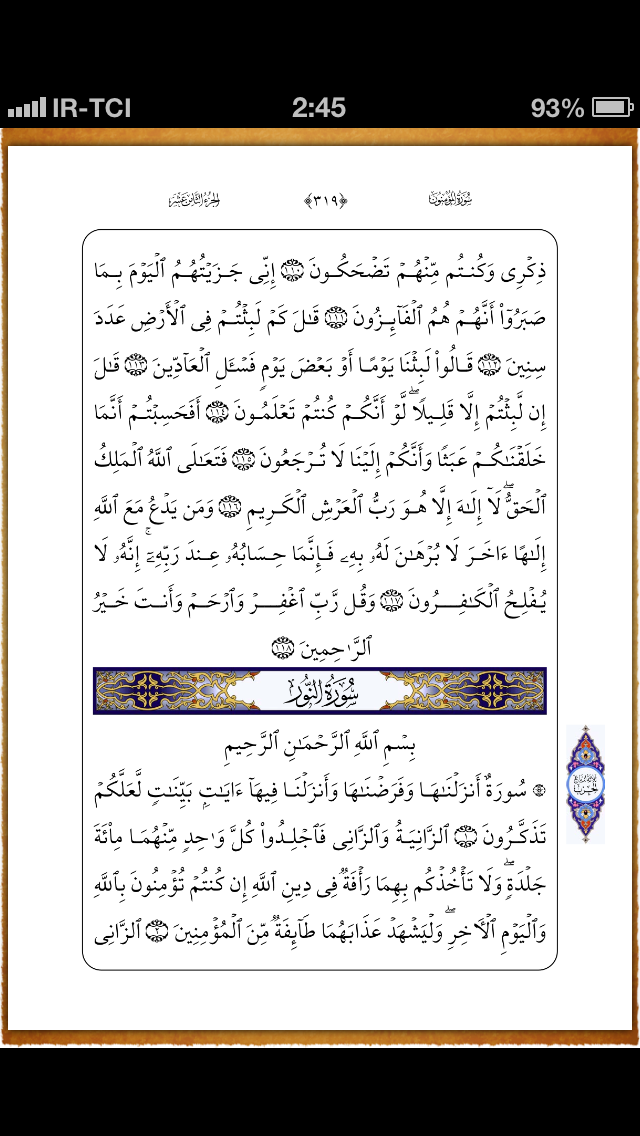 IR-TCI 2:45 93%
سُورَةُ المُؤمِنُون ﴿٣١٩﴾ الجُزءُ الثَّامِنَ عَشَرَ
ذِكْرِى وَكُنتُم مِّنْهُمْ تَضْحَكُونَ ١١٠ إِنِّى جَزَيْتُهُمُ ٱلْيَوْمَ بِمَا
صَبَرُوٓا۟ أَنَّهُمْ هُمُ ٱلْفَآئِزُونَ ١١١ قَـٰلَ كَمْ لَبِثْتُمْ فِى ٱلْأَرْضِ عَدَدَ
سِنِينَ ١١٢ قَالُوا۟ لَبِثْنَا يَوْمًا أَوْ بَعْضَ يَوْمٍ فَسْـَٔلِ ٱلْعَآدِّينَ ١١٣ قَـٰلَ
إِن لَّبِثْتُمْ إِلَّا قَلِيلًا ۖ لَّوْ أَنَّكُمْ كُنتُمْ تَعْلَمُونَ ١١٤ أَفَحَسِبْتُمْ أَنَّمَا
خَلَقْنَـٰكُمْ عَبَثًا وَأَنَّكُمْ إِلَيْنَا لَا تُرْجَعُونَ ١١٥ فَتَعَـٰلَى ٱللَّهُ ٱلْمَلِكُ
ٱلْحَقُّ ۖ لَآ إِلَـٰهَ إِلَّا هُوَ رَبُّ ٱلْعَرْشِ ٱلْكَرِيمِ ١١٦ وَمَن يَدْعُ مَعَ ٱللَّهِ
إِلَـٰهًا ءَاخَرَ لَا بُرْهَـٰنَ لَهُۥ بِهِۦ فَإِنَّمَا حِسَابُهُۥ عِندَ رَبِّهِۦٓ ۚ إِنَّهُۥ لَا
يُفْلِحُ ٱلْكَـٰفِرُونَ ١١٧ وَقُل رَّبِّ ٱغْفِرْ وَٱرْحَمْ وَأَنتَ خَيْرُ
ٱلرَّٰحِمِينَ ١١٨
سُورَةُ النُّور
بِسْمِ ٱللَّهِ ٱلرَّحْمَـٰنِ ٱلرَّحِيمِ
سُورَةٌ أَنزَلْنَـٰهَا وَفَرَضْنَـٰهَا وَأَنزَلْنَا فِيهَآ ءَايَـٰتٍۭ بَيِّنَـٰتٍ لَّعَلَّكُمْ
تَذَكَّرُونَ ١ ٱلزَّانِيَةُ وَٱلزَّانِى فَٱجْلِدُوا۟ كُلَّ وَٰحِدٍ مِّنْهُمَا مِا۟ئَةَ
جَلْدَةٍ ۖ وَلَا تَأْخُذْكُم بِهِمَا رَأْفَةٌ فِى دِينِ ٱللَّهِ إِن كُنتُمْ تُؤْمِنُونَ بِٱللَّهِ
وَٱلْيَوْمِ ٱلْـَٔاخِرِ ۖ وَلْيَشْهَدْ عَذَابَهُمَا طَآئِفَةٌ مِّنَ ٱلْمُؤْمِنِينَ ٢ ٱلزَّانِى